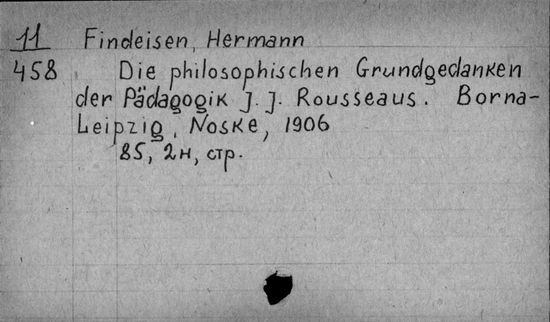 11 Findeisen, Hermann
458 Die philosophischen Grundgedanken
der Pädagogik J. J. Rousseaus. Borna-
Leipzig, Noske, 1906
85, 2н, стр.